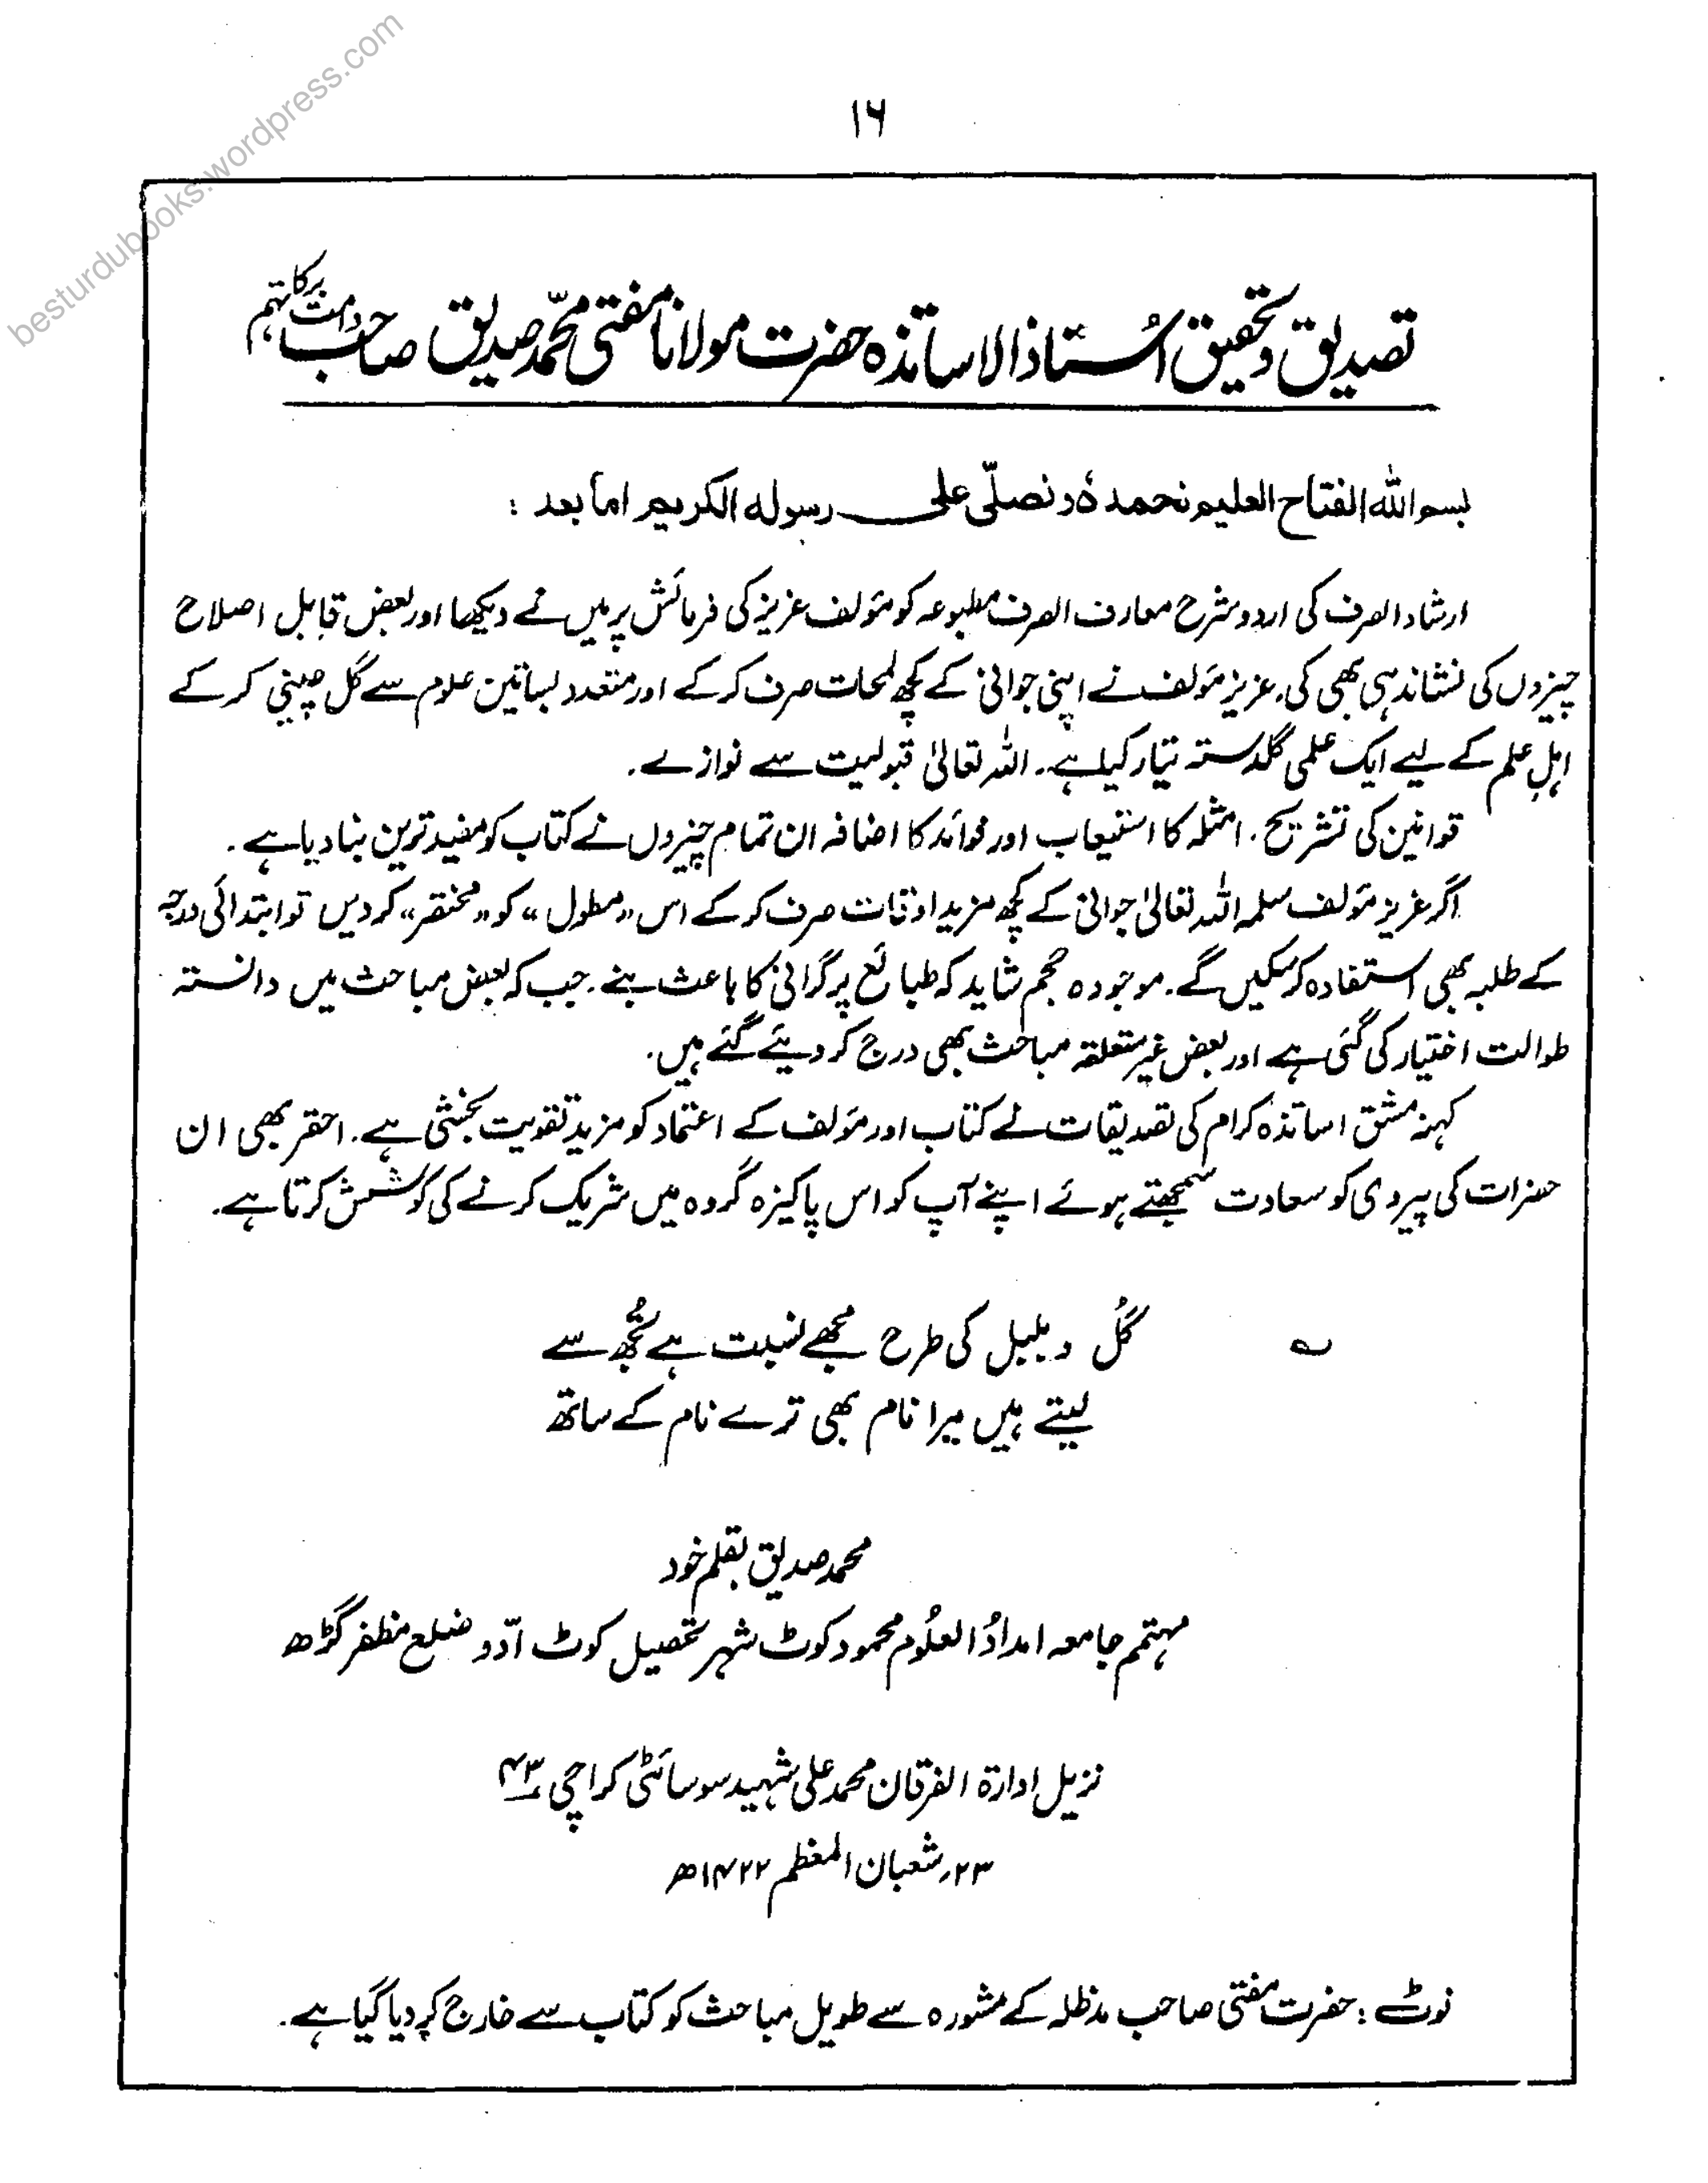 besturdubooks.wordpress.com
۱۶
تصدیق و تحقیق اُستاذ الاساتذہ حضرت مولانا مفتی محمّد صدیق صاحب دامت برکاتہم
بسم اللہ الفتاح العلیم نحمدہٗ و نصلّی علی رسولہ الکریم اما بعد :
ارشاد الصرف کی اردو شرح معارف الصرف مطبوعہ کو مؤلف عزیز کی فرمائش پر میں نے دیکھا اور بعض قابل اصلاح
چیزوں کی نشاندہی بھی کی۔ عزیز مؤلف نے اپنی جوانی کے کچھ لمحات صرف کر کے اور متعدد بساتین علوم سے گل چینی کر کے
اہلِ علم کے لیے ایک علمی گلدستہ تیار کیا ہے۔ اللہ تعالیٰ قبولیت سے نوازے۔
قوانین کی تشریح۔ امثلہ کا استیعاب اور فوائد کا اضافہ ان تمام چیزوں نے کتاب کو مفید ترین بنا دیا ہے۔
اگر عزیز مؤلف سلمہ اللہ تعالیٰ جوانی کے کچھ مزید اوقات صرف کر کے اس "مطول" کو "مختصر" کر دیں تو ابتدائی درجہ
کے طلبہ بھی استفادہ کر سکیں گے۔ موجودہ حجم شاید کہ طبائع پر گرانی کا باعث بنے۔ جب کہ بعض مباحث میں دانستہ
طوالت اختیار کی گئی ہے اور بعض غیر متعلقہ مباحث بھی درج کر دیئے گئے ہیں۔
کہنہ مشق اساتذہ کرام کی تصدیقات نے کتاب اور مؤلف کے اعتماد کو مزید تقویت بخشی ہے۔ احقر بھی ان
حضرات کی پیروی کو سعادت سمجھتے ہوئے اپنے آپ کو اس پاکیزہ گروہ میں شریک کرنے کی کوشش کرتا ہے۔
؎ گُل و بلبل کی طرح مجھے نسبت ہے تُجھ سے
لیتے ہیں میرا نام بھی ترے نام کے ساتھ
محمد صدیق بقلم خود
مہتمم جامعہ امدادُ العلُوم محمود کوٹ شہر تحصیل کوٹ ادّو ضلع مظفر گڑھ
نزیل ادارۃ الفرقان محمد علی شہید سوسائٹی کراچی ۴۳
۲۳؍ شعبان المعظم ۱۴۲۲ھ
نوٹ : حضرت مفتی صاحب مدظلہ کے مشورہ سے طویل مباحث کو کتاب سے خارج کر دیا گیا ہے۔